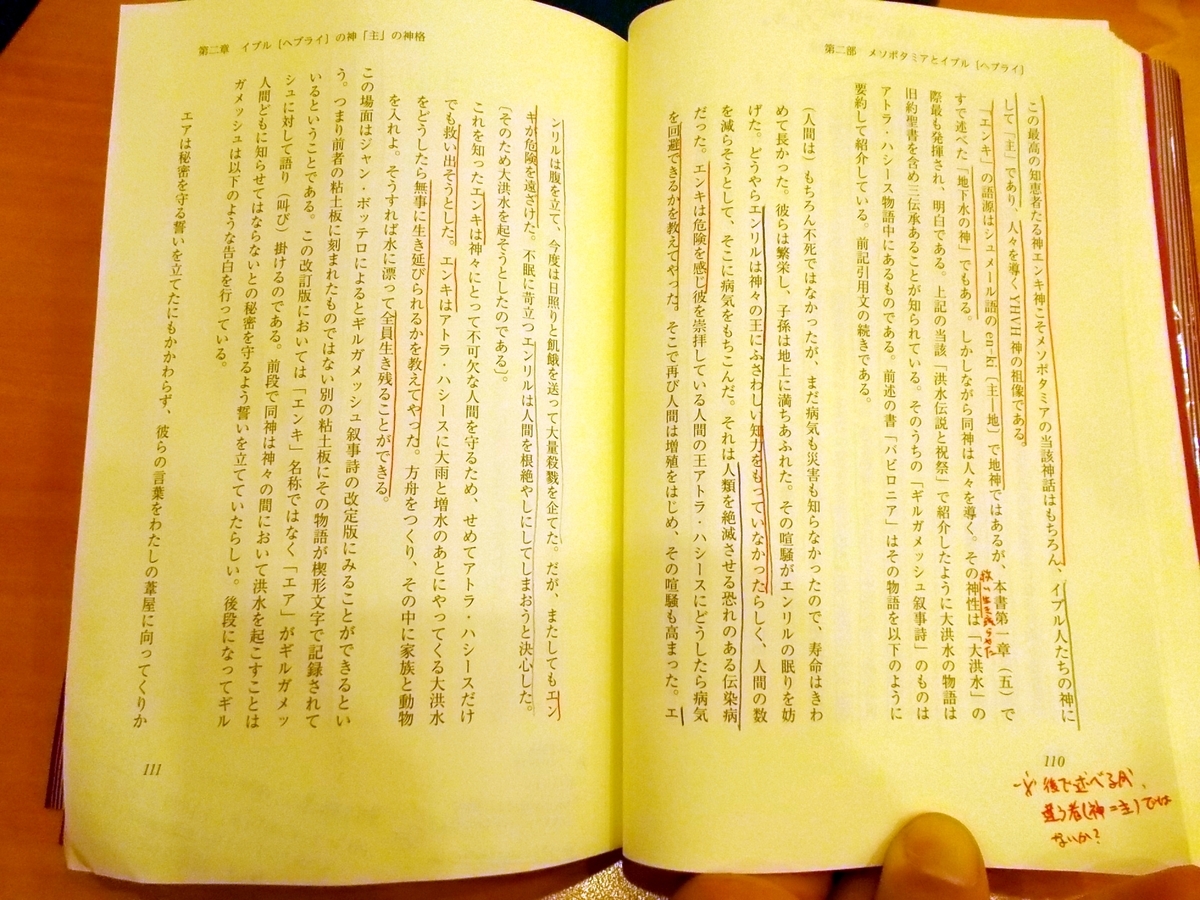 第二部 メソポタミアとイブル［ヘブライ］
この最高の知恵者たる神エンキ神こそメソポタミアの当該神話はもちろん、イブル人たちの神に
して「主」であり、人々を導くYHVH神の祖像である。
「エンキ」の語源はシュメール語のen-ki［主―地］で地神ではあるが、本書第一章（五）で
すで述べた「地下水の神」でもある。しかしながら同神は人々を導く。その神性は「大洪水」の
際最も発揮され、明白である。上記の当該「洪水伝説と祝祭」で紹介したように大洪水の物語は
旧約聖書を含め三伝承あることが知られている。そのうちの「ギルガメッシュ叙事詩」のものは
アトラ・ハシース物語中にあるものである。前述の書「バビロニア」はその物語を以下のように
要約して紹介している。前記引用文の続きである。
（人間は）もちろん不死ではなかったが、まだ病気も災害も知らなかったので、寿命はきわ
めて長かった。彼らは繁栄し、子孫は地上に満ちあふれた。その喧騒がエンリルの眠りを妨
げた。どうやらエンリルは神々の王にふさわしい知力をもっていなかったらしく、人間の数
を減らそうとして、そこに病気をもちこんだ。それは人類を絶滅させる恐れのある伝染病
だった。エンキは危険を感じ彼を崇拝している人間の王アトラ・ハシースにどうしたら病気
を回避できるかを教えてやった。そこで再び人間は増殖をはじめ、その喧騒も高まった。エ
110
※後で述べるが、
違う者（神＝主）では
ないか？
第二章 イブル［ヘブライ］の神「主」の神格
ンリルは腹を立て、今度は日照りと飢餓を送って大量殺戮を企てた。だが、またしてもエン
キが危険を遠ざけた。不眠に苛立つエンリルは人間を根絶やしにしてしまおうと決心した。
（そのため大洪水を起そうとしたのである）。
これを知ったエンキは神々にとって不可欠な人間を守るため、せめてアトラ・ハシースだけ
でも救い出そうとした。エンキはアトラ・ハシースに大雨と増水のあとにやってくる大洪水
をどうしたら無事に生き延びられるかを教えてやった。方舟をつくり、その中に家族と動物
を入れよ。そうすれば水に漂って全員生き残ることができる。
この場面はジャン・ボッテロによるとギルガメッシュ叙事詩の改定版にみることができるとい
う。つまり前者の粘土板に刻まれたものではない別の粘土板にその物語が楔形文字で記録されて
いるということである。この改訂版においては「エンキ」名称ではなく「エア」がギルガメッ
シュに対して語り（叫び）掛けるのである。前段で同神は神々の間において洪水を起こすことは
人間どもに知らせてはならないとの秘密を守るよう誓いを立てていたらしい。後段になってギル
ガメッシュは以下のような告白を行っている。
エアは秘密を守る誓いを立てたにもかかわらず、彼らの言葉をわたしの葦屋に向ってくりか
111